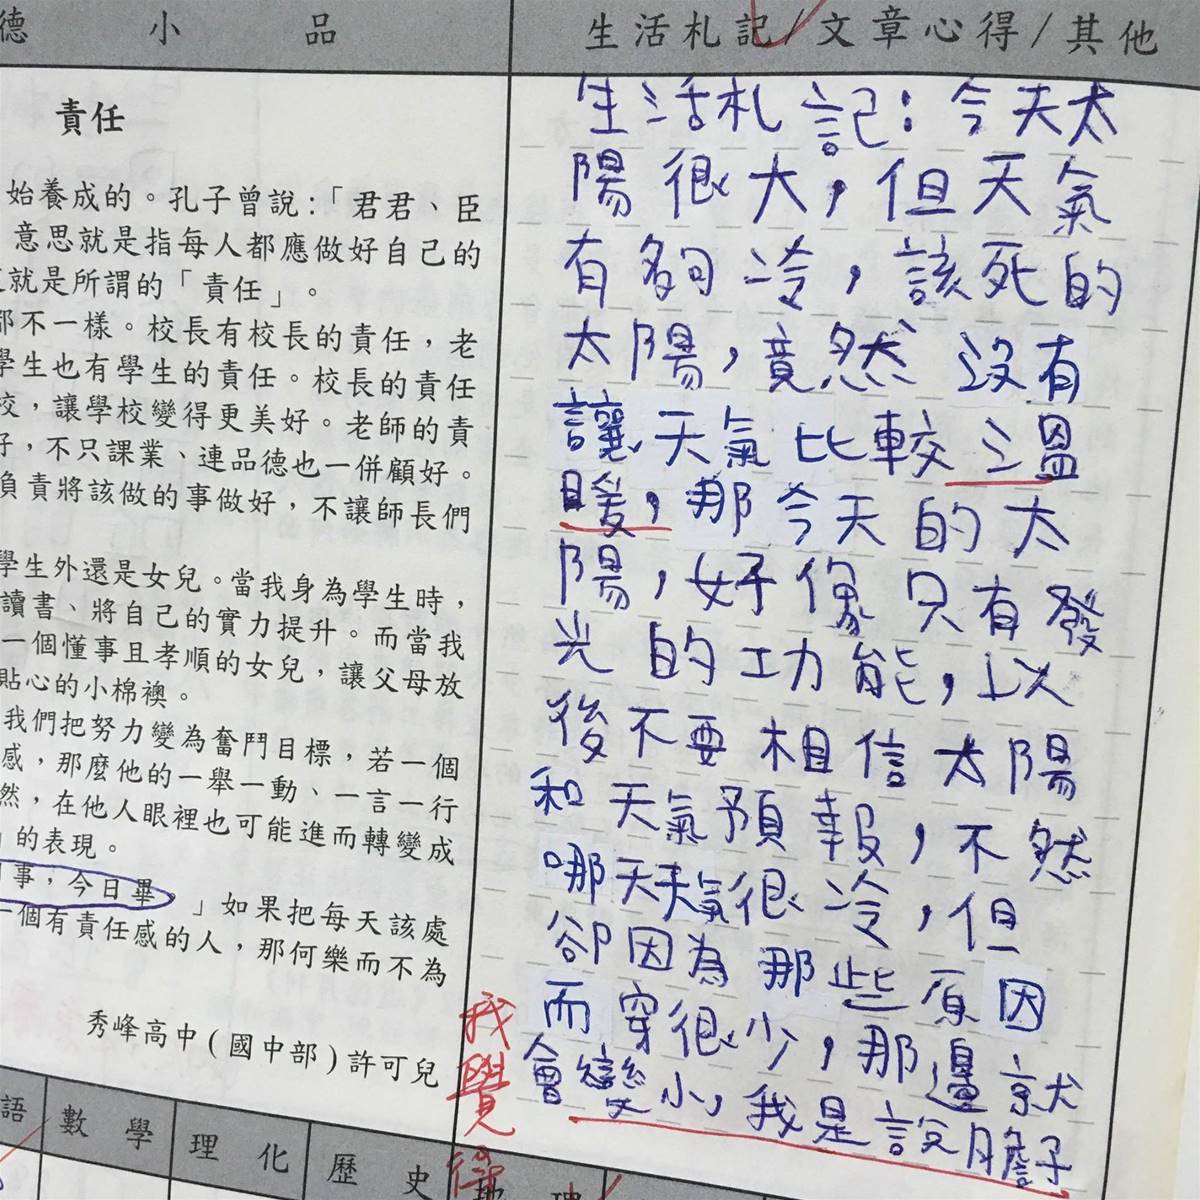 德小品
責任
始養成的。孔子曾說:「君君、臣
意思就是指每人都應做好自己的
就是所謂的「責任」。
都不一樣。校長有校長的責任，老
學生也有學生的責任。校長的責任
校，讓學校變得更美好。老師的責
好，不只課業、連品德也一併顧好。
負責將該做的事做好，不讓師長們
學生外還是女兒。當我身為學生時，
讀書、將自己的實力提升。而當我
一個懂事且孝順的女兒，讓父母放
貼心的小棉襖。
我們把努力變為奮鬥目標，若一個
感，那麼他的一舉一動、一言一行
然，在他人眼裡也可能進而轉變成
」的表現。
事，今日畢。」如果把每天該處
一個有責任感的人，那何樂而不為
秀峰高中(國中部)許可兒
語 數學 理化 歷史 地理
生活札記/文章心得/其他
生活札記:今天太
陽很大，但天氣
有夠冷，該死的
太陽，竟然沒有
讓天氣比較溫
暖，那今天的太
陽，好像只有發
光的功能，以
後不要相信太陽
和天氣預報，不然
哪天天氣很冷，但
卻因為那些原因
而穿很少，那邊就
會變小，我是說膽子
我覺得